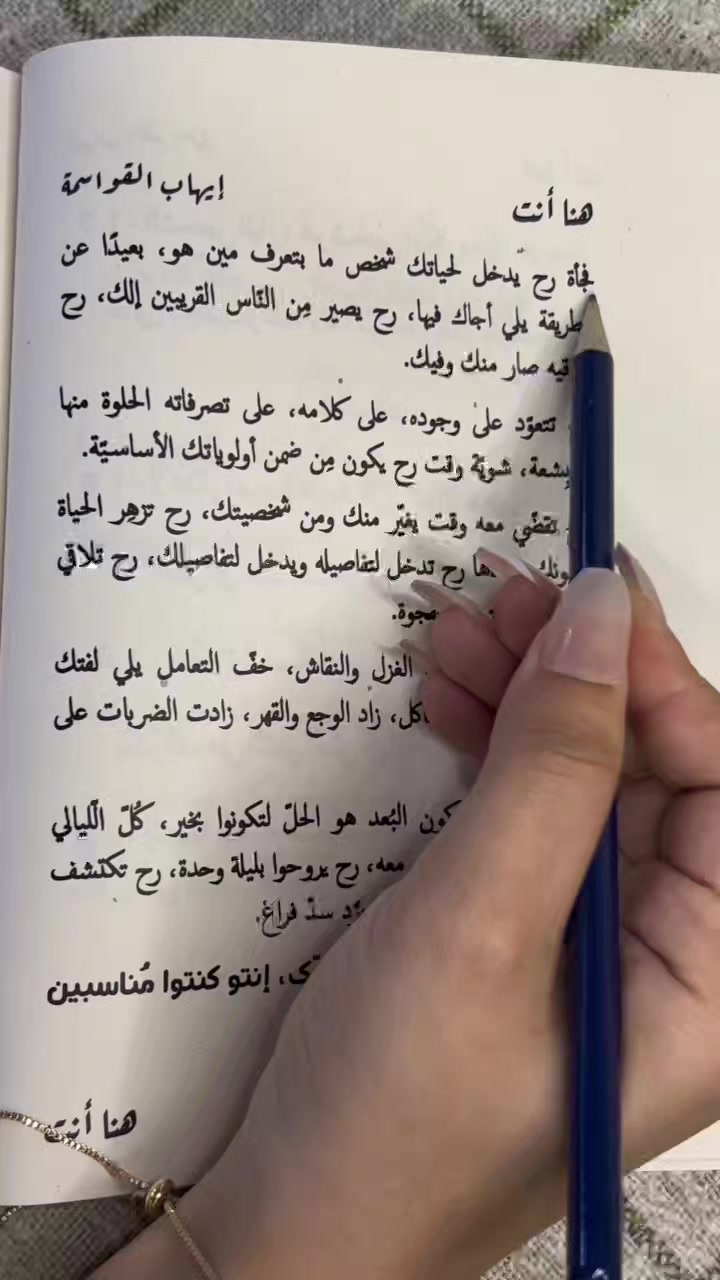 هنا أنت
إيهاب القواسمة
فجأة رح يدخل لحياتك شخص ما بتعرف مين هو، بعيدًا عن
طريقة يلي أجاك فيها، رح يصير مِن النّاس القريبين إلك، رح
صار منك وفيك.
تتعوّد على وجوده، على كلامه، على تصرفاته الحلوة منها
شويّة وقت رح يكون مِن ضمن أولوياتك الأساسيّة.
تقضّي معه وقت يغيّر منك ومن شخصيتك، رح تزهِر الحياة
رح تدخل لتفاصيله ويدخل لتفاصيلك، رح تلاقي
الغزل والنقاش، خفّ التعامل يلي لفتك
زاد الوجع والقهر، زادت الضربات على
البُعد هو الحلّ لتكونوا بخير، كُلّ اللّيالي
معه، رح يروحوا بليلة وحدة، رح تكتشف
سدّ فراغ.
إنتو كنتوا مُناسبين
هنا أنت